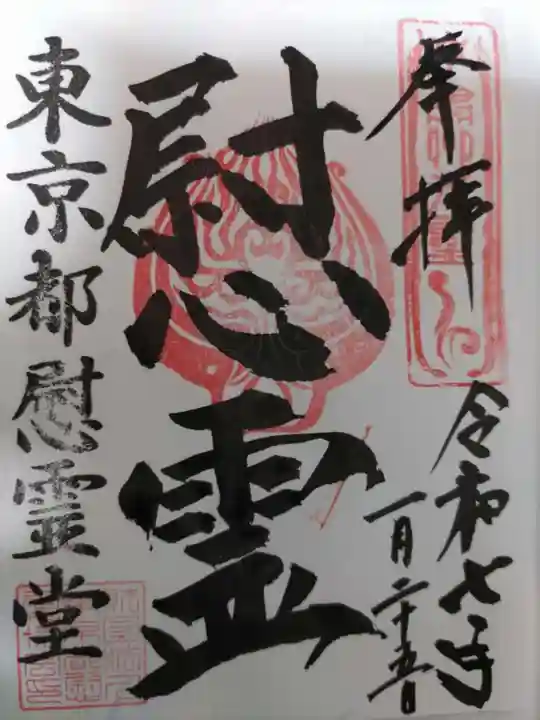 奉拝
令和七年
一月二十五日
慰霊
東京都慰霊堂